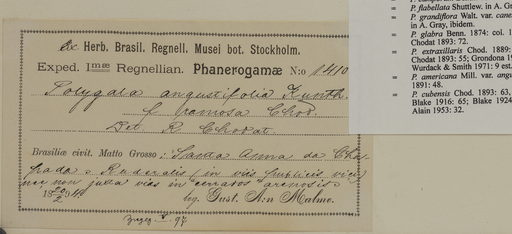 Ex Herb. Brasil. Regnell. Musei bot. Stockholm.
Exped. Imæ Regnellian. Phanerogamæ N:o 1410
Polygala angustifolia Kunth.
f. ramosa Chod.
Det. R. Chodat
Brasiliæ civit. Matto Grosso: Santa Anna da Cha-
pada. Ruderalis in viis publicis vici
nec non juxta vias in cerrados arenosis.
18 94
leg. Gust. A:n Malme.
97
= P. flabellata Shuttlew. in A. Gr
= P. grandiflora Walt. var. cane
in A. Gray, ibidem.
= P. glabra Benn. 1874: col. 1
Chodat 1893: 72.
= P. extraxillaris Chod. 1889:
Chodat 1893: 55; Grondona 19
Wurdack & Smith 1971: 9 est.
= P. americana Mill. var. angu
1891: 48.
= P. cubensis Chod. 1893: 63,
Blake 1916: 65; Blake 1924
Alain 1953: 32.